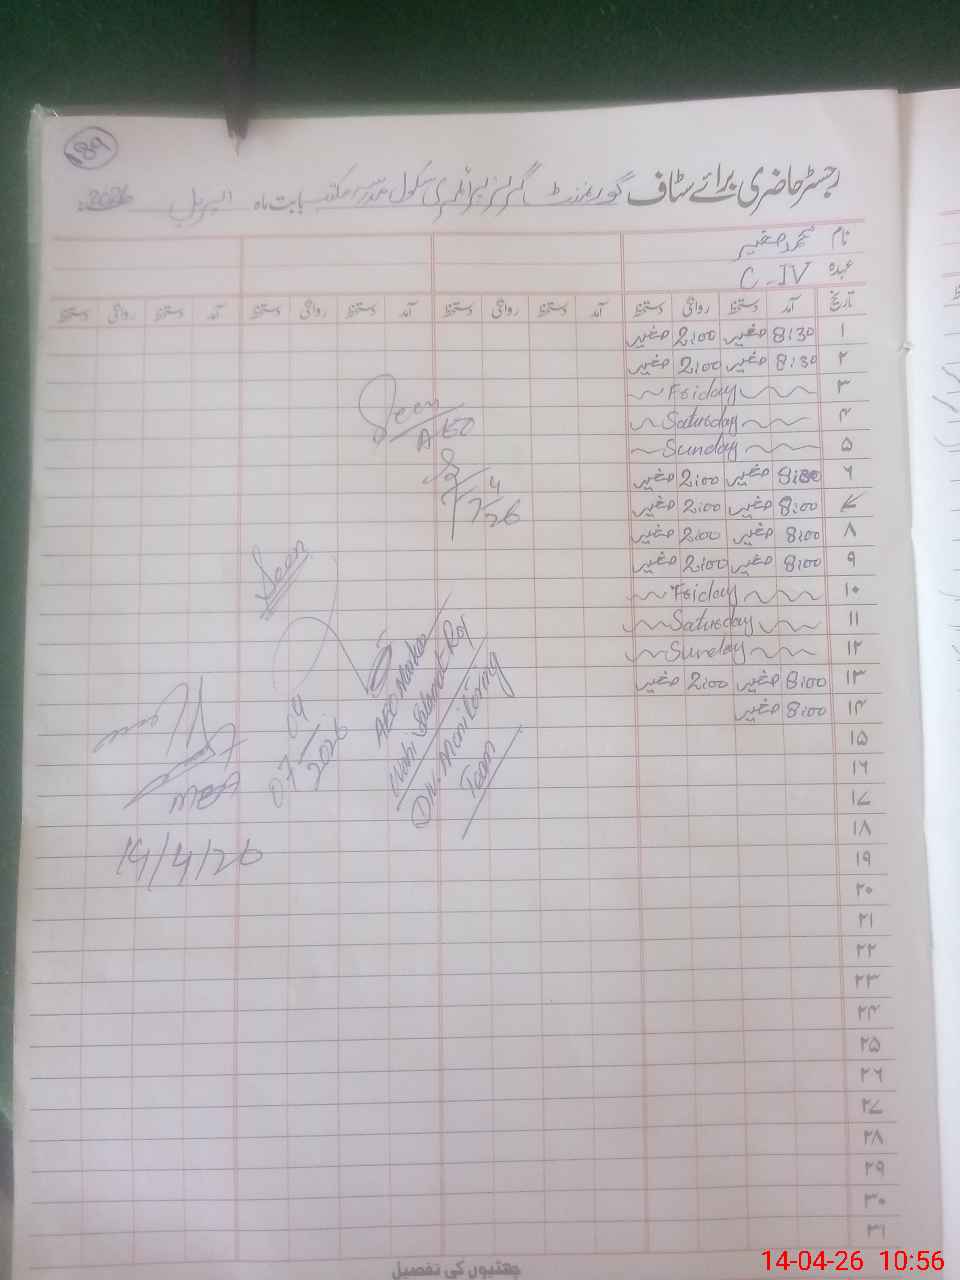 189
رجسٹر حاضری برائے سٹاف گورنمنٹ گرلز پرائمری سکول مدرسہ مکتب بابت ماہ اپریل 2026ء
نام محمد صغیر
عہدہ C-IV
تاریخ آمد دستخط روانگی دستخط آمد دستخط روانگی دستخط آمد دستخط روانگی دستخط
۱ 8:30 صغیر 2:00 صغیر
۲ 8:30 صغیر 2:00 صغیر
۳ Friday
۴ Saturday
۵ Sunday
۶ 8:00 صغیر 2:00 صغیر
۷ 8:00 صغیر 2:00 صغیر
۸ 8:00 صغیر 2:00 صغیر
۹ 8:00 صغیر 2:00 صغیر
۱۰ Friday
۱۱ Saturday
۱۲ Sunday
۱۳ 8:00 صغیر 2:00 صغیر
۱۴ 8:00 صغیر
۱۵
۱۶
۱۷
۱۸
۱۹
۲۰
۲۱
۲۲
۲۳
۲۴
۲۵
۲۶
۲۷
۲۸
۲۹
۳۰
۳۱
Seen
AEO
7/4/26
Seen
07/04/2026
AEO Markee
Div. Monitoring
Team
14/4/26
چھٹیوں کی تفصیل
14-04-26 10:56